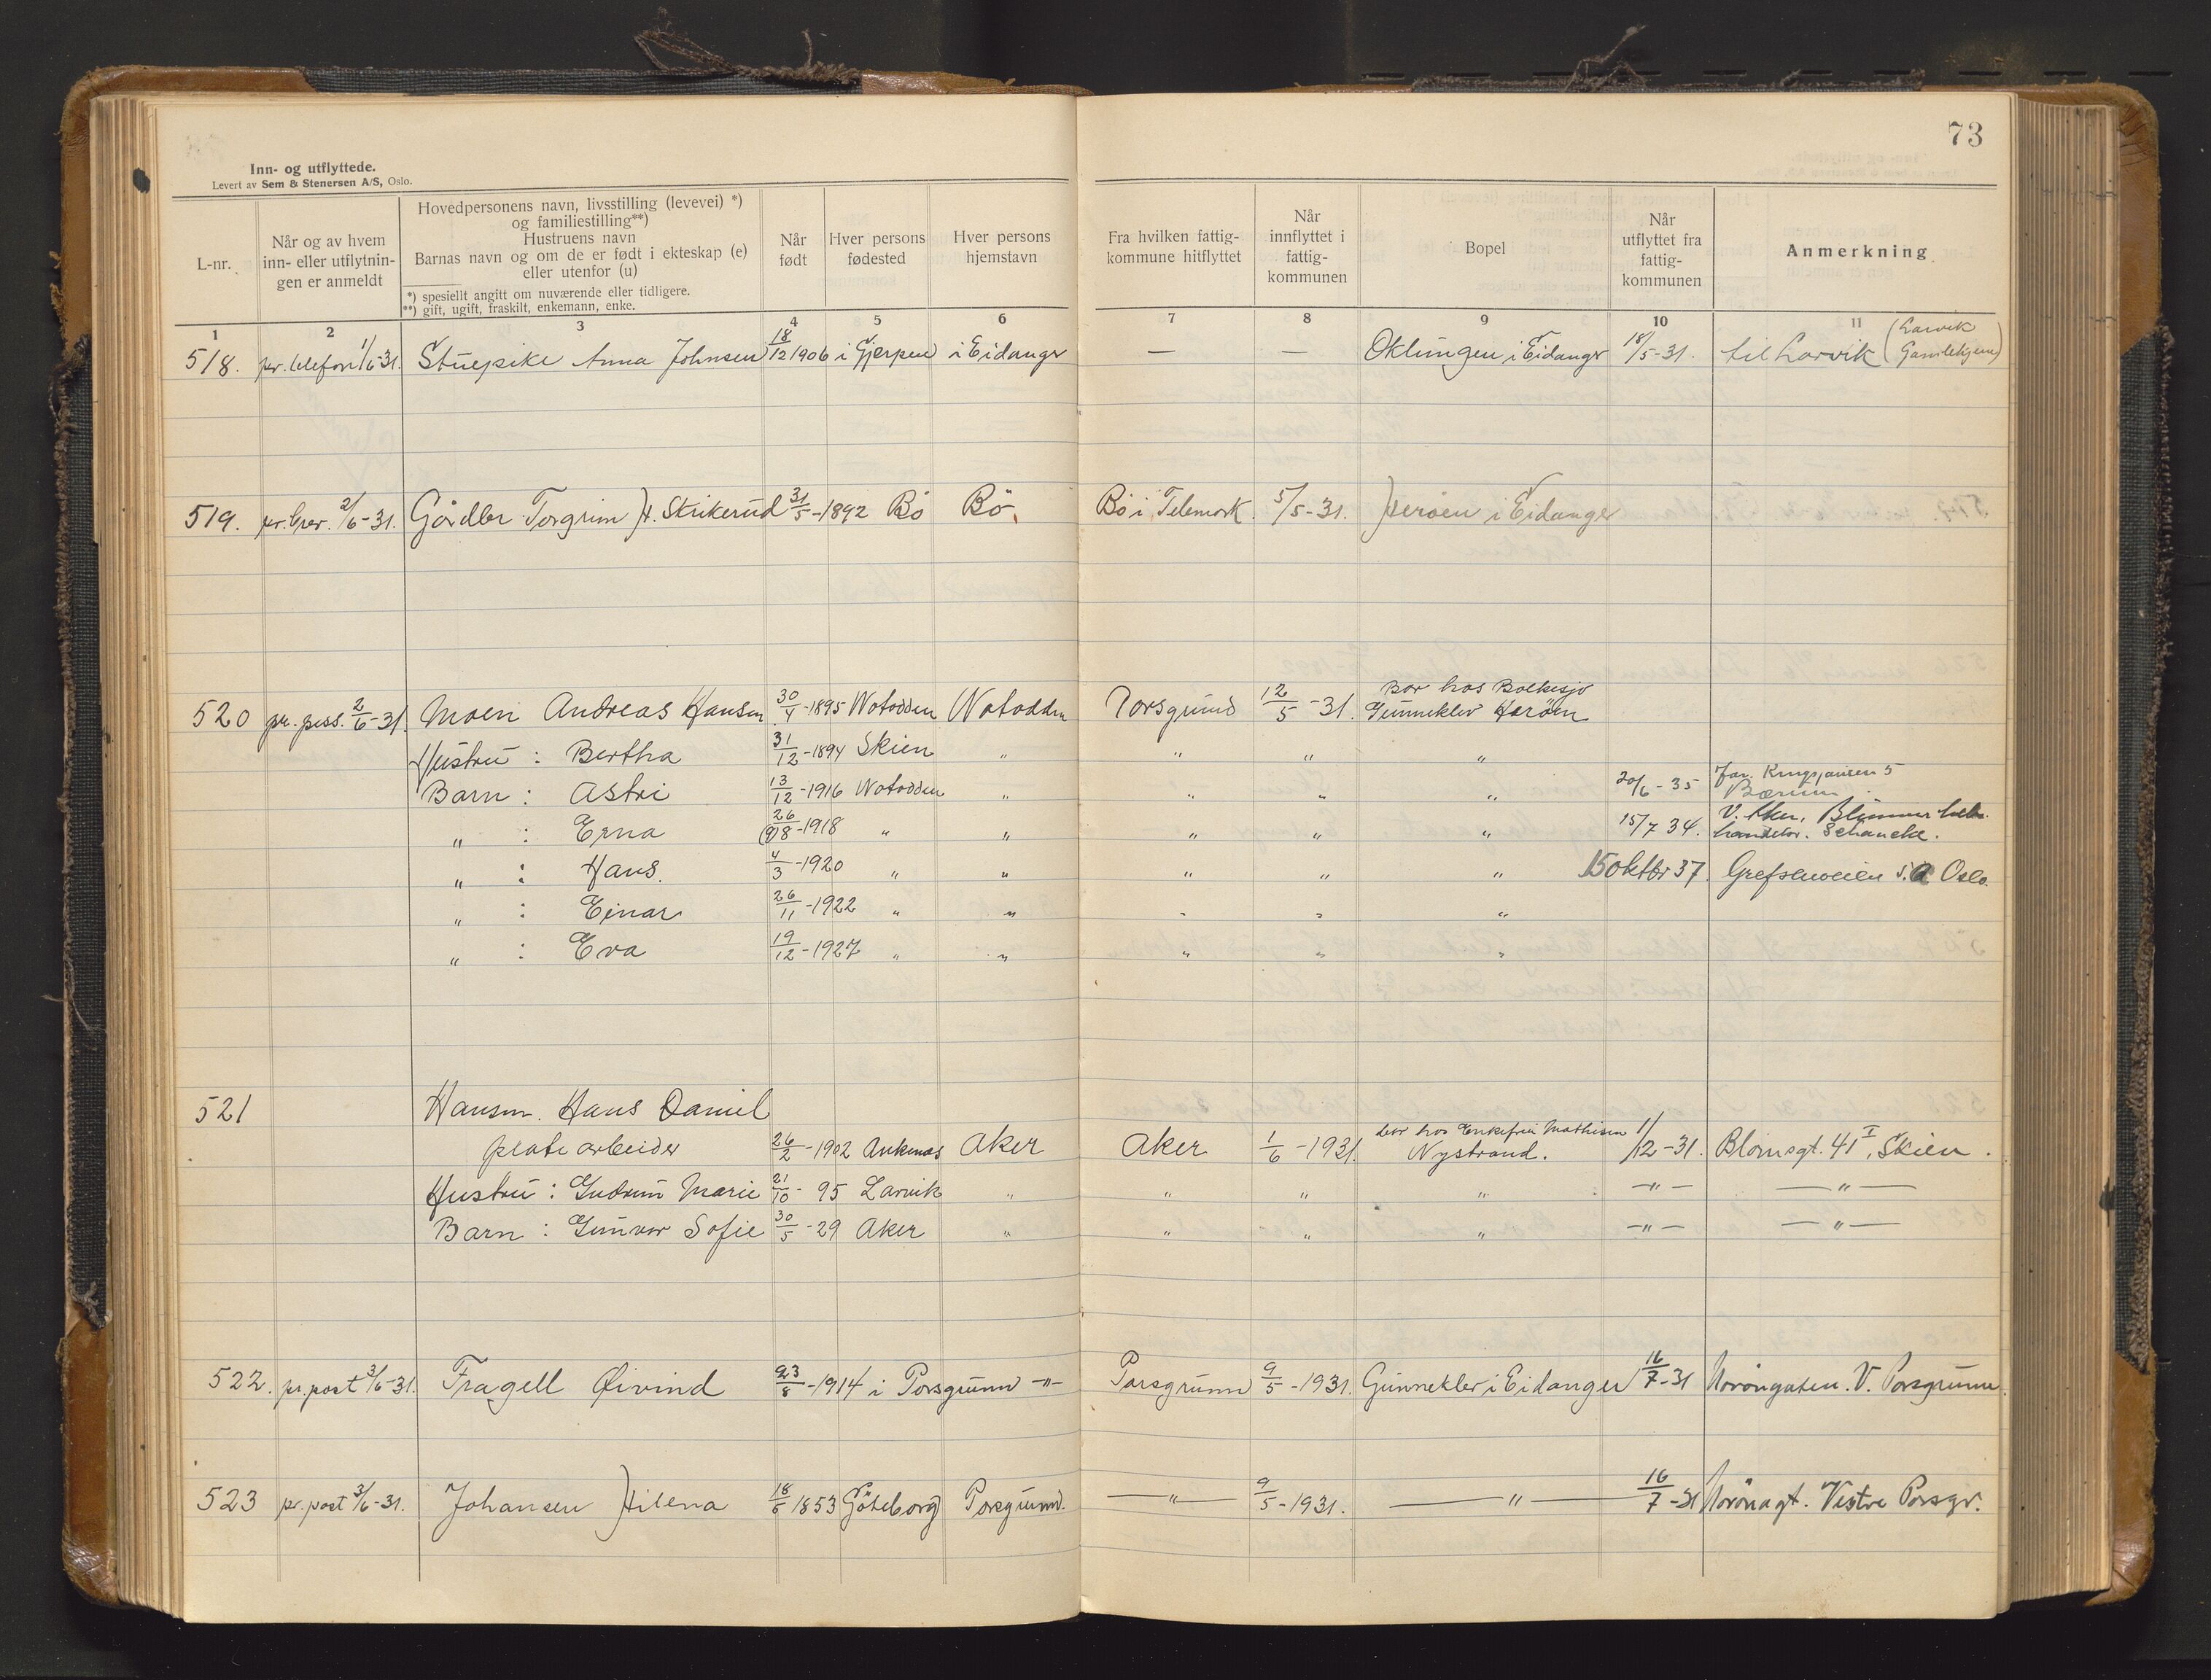 73
Inn- og utflyttede.
Levert av Sem & Stenersen A/S, Oslo.
L-nr.
Når og av hvem inn- eller utflytningen er anmeldt
Hovedpersonens navn, livsstilling (levevei) *) og familiestilling**)
Hustruens navn
Barnas navn og om de er født i ekteskap (e) eller utenfor (u)
*) spesiellt angitt om nuværende eller tidligere.
**) gift, ugift, fraskilt, enkemann, enke.
Når født
Hver persons fødested
Hver persons hjemstavn
Fra hvilken fattigkommune hitflyttet
Når innflyttet i fattigkommunen
Bopel
Når utflyttet fra fattigkommunen
Anmerkning
1 2 3 4 5 6 7 8 9 10 11
518. pr. telefon 1/6-31. Stuepike Anna Johnsen 18/12 1906 i Gjerpen i Eidanger — — Oklungen i Eidanger 18/5-31. til Larvik (Larvik
519. pr. brev. 2/6-31. Torgrim H. Strikerud 31/5-1892 Bö Bö Bö i Telemark. 5/5-31. Heröen i Eidanger
520 pr. pers. 2/6-31. Moen Andreas Hansen 30/4-1895 Notodden Notodden Porsgrund 12/5-31. Bor hos Bolkesjö
Gunneklev Heröen
Hustru : Bertha 31/12-1894 Skien " " " "
Barn : Astri 13/12-1916 Notodden " " " " 20/6-35 5
Bærum
" : Erna 26/8-1918 " " " " " 15/7 34. V. Aker,
Schancke.
" : Hans. 4/3-1920 " " " " " 15 oktbr 37 Grefsenveien 5.a Oslo.
" : Einar 26/11-1922 " " " " "
" : Eva 19/12-1927 " " " " "
521 Hansen. Hans Daniel
platearbeider 26/2-1902 Ankenes Aker Aker 1/6-1931. bor hos Enkefru Mathisen
Nystrand. 1/12-31. Blomsgt. 41 I, Skien.
Hustru : Gudrun Marie 21/10-95 Larvik " " " " —"— —"—
Barn : Gunvor Sofie 30/5-29 Aker " " " " —"— —"—
522. pr. post 3/6-31. Fragell Øivind 23/8-1914 i Porsgrunn -"- Porsgrunn 9/5-1931. Gunneklev i Eidanger 16/7-31 V. Porsgrunn.
523 pr. post 3/6-31. Johansen Hilena 18/6 1853 Göteborg Porsgrund. —"— 9/5-1931. —"— 16/7-31 Vestre Porsgr.